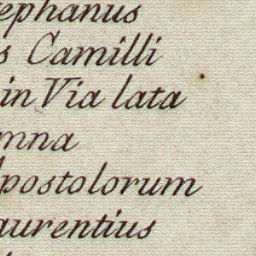 ephanus
s Camilli
in Via lata
mna
postolorum
aurentius